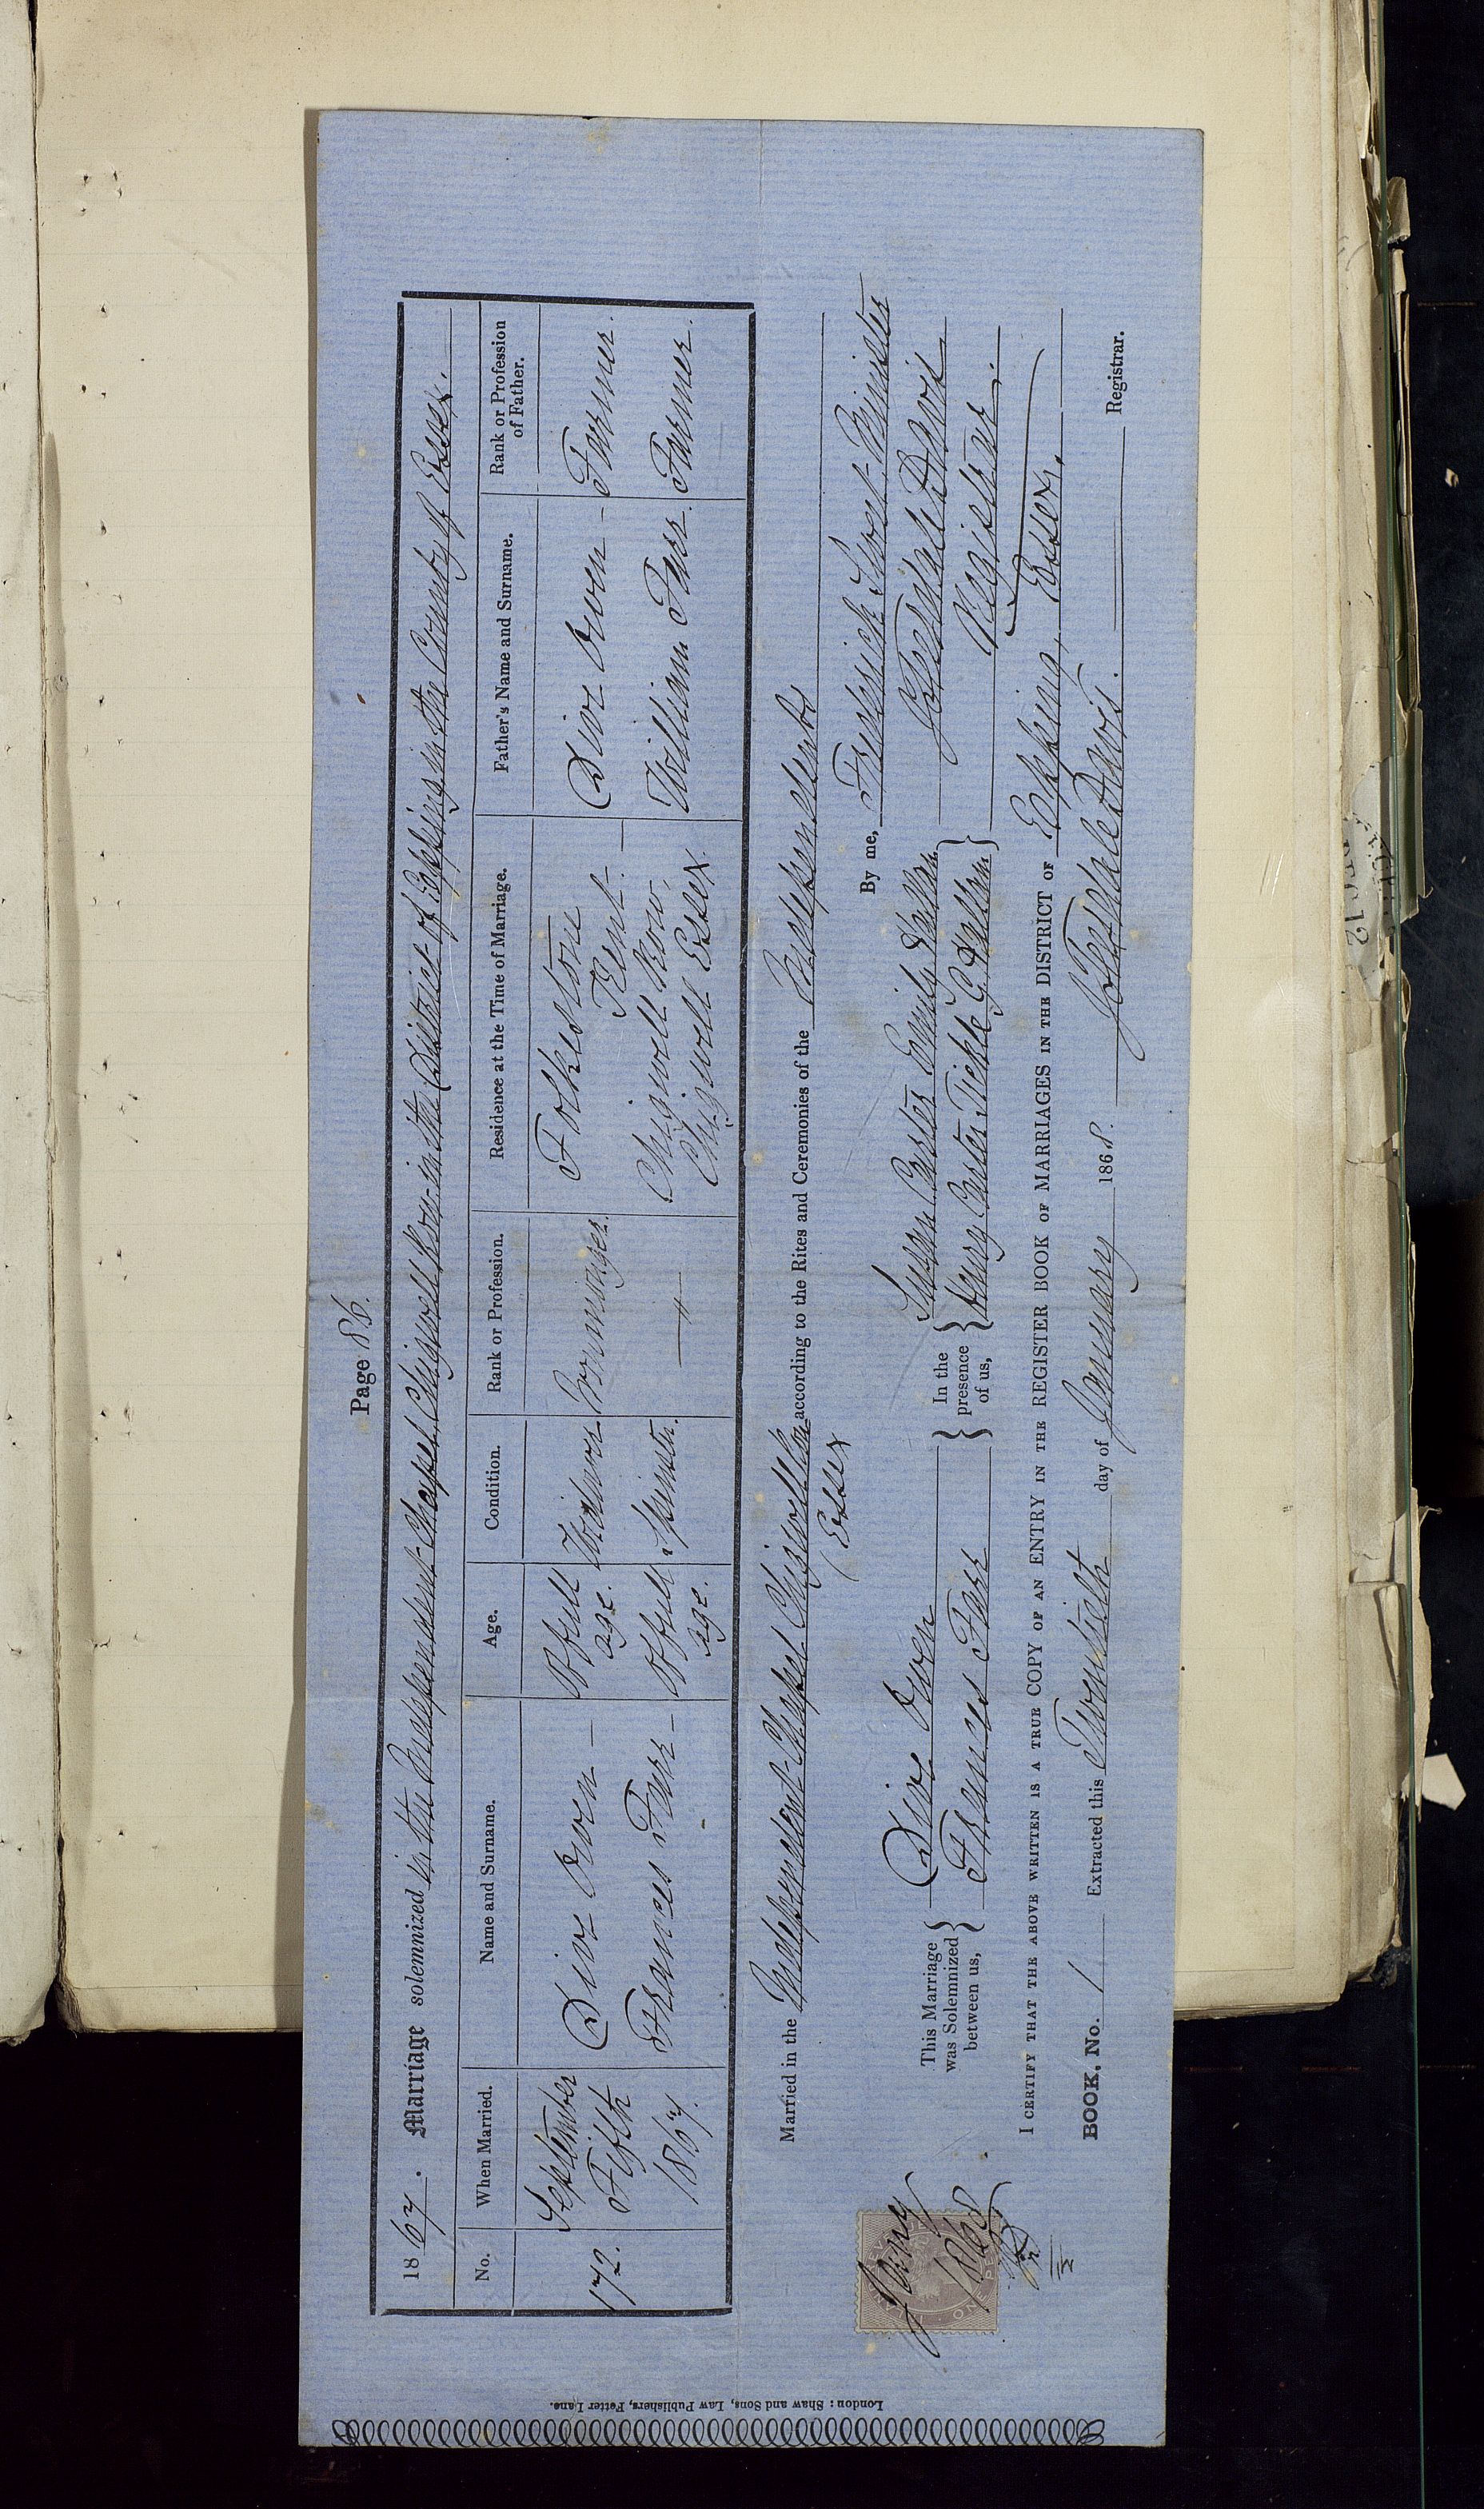 Page 86.
1867. Marriage solemnized in the Independent Chapel Chigwell Row in the District of Epping in the County of Essex.
No. When Married. Name and Surname. Age. Condition. Rank or Profession. Residence at the Time of Marriage. Father's Name and Surname. Rank or Profession of Father.
172. September Fifth 1867.
Dive Owen — Of full age. Widower Ironmonger. Folkestone Kent. — Dive Owen — Farmer.
Frances Farr — Of full age. Spinster. — Chigwell Row, Chigwell Essex. William Farr. Farmer.
Married in the Independent Chapel Chigwell Row according to the Rites and Ceremonies of the Independents
Essex
By me, Frederick Minister
This Marriage was Solemnized between us,
Dive Owen
Frances Farr
In the presence of us,
Susan Carter Emily
Henry Carter Tickle G
Davis
Registrar.
I CERTIFY THAT THE ABOVE WRITTEN IS A TRUE COPY OF AN ENTRY IN THE REGISTER BOOK OF MARRIAGES IN THE DISTRICT OF Epping, Essex.
BOOK, No. 1 Extracted this Twentieth day of January 1868. Davis. Registrar.
ONE PENNY
1868
London: Shaw and Sons, Law Publishers, Fetter Lane.